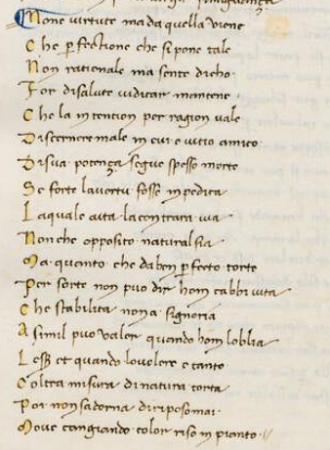 Non e virtute ma da quella viene
Che perfectione che si pone tale
Non rationale ma sente dicho
For di salute iudicar mantene
Che la intention per ragion vale
Discerne male in cui e vitio amico
Di sua potenza segue spesso morte
Se forte la vertu fosse inpedita
La quale aita la contraria via
Non che opposito natural sia
Ma quanto che da ben perfecto torte
Per sorte non puo dir hom cabbi vita
Che stabilita non a signoria
A simil puo valer quando hom loblia
Lesser et quando lo volere e tanto
Coltra misura di natura torta
Poi non sadorna di riposo mai
Move cangiando color riso in pianto